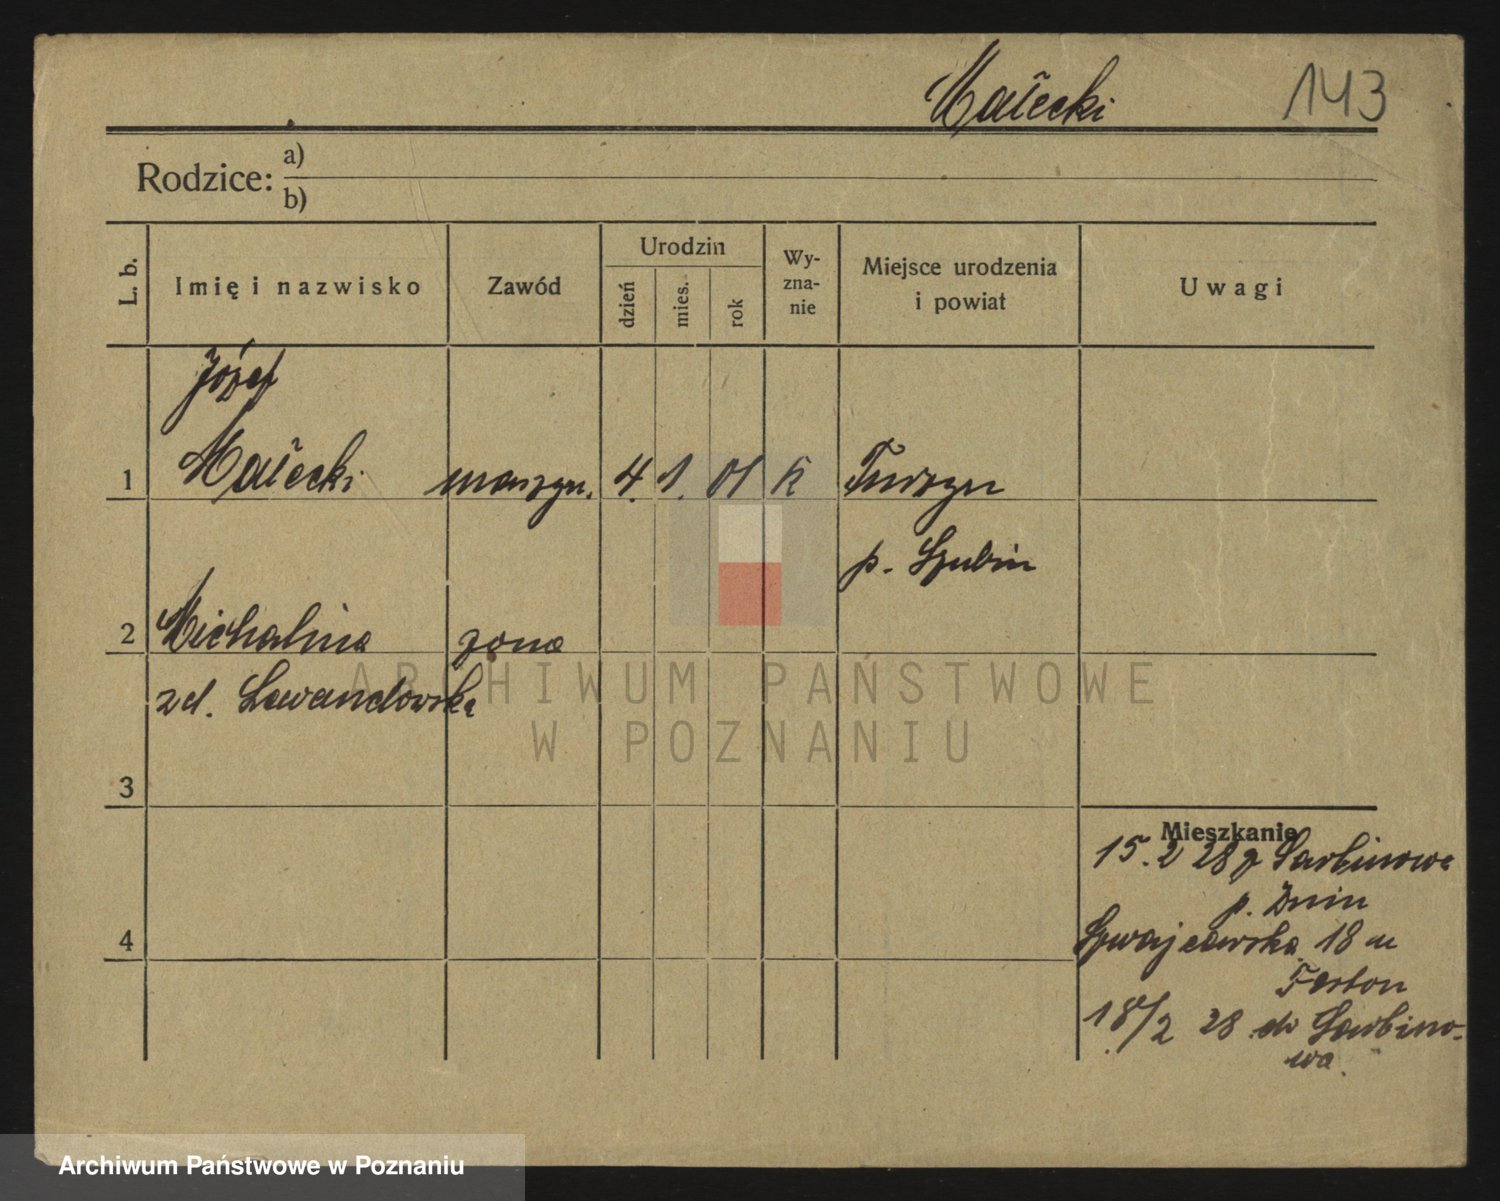 Małecki 143
Rodzice: a)
b)
L. b. Imię i nazwisko Zawód Urodzin dzień mies. rok Wy-zna-nie Miejsce urodzenia i powiat Uwagi
Józef
1 Małecki maszyn. 4. 1. 01 k Turzyn
p. Szubin
2 Michalina żona
zd. Lewandowska
3
Mieszkanie
15.2 28 z Sarbinowa
p. Żnin
4 Szwajcarska 18 m
18/2 28 do Sarbino-
wa.
ARCHIWUM PAŃSTWOWE
W POZNANIU
Archiwum Państwowe w Poznaniu